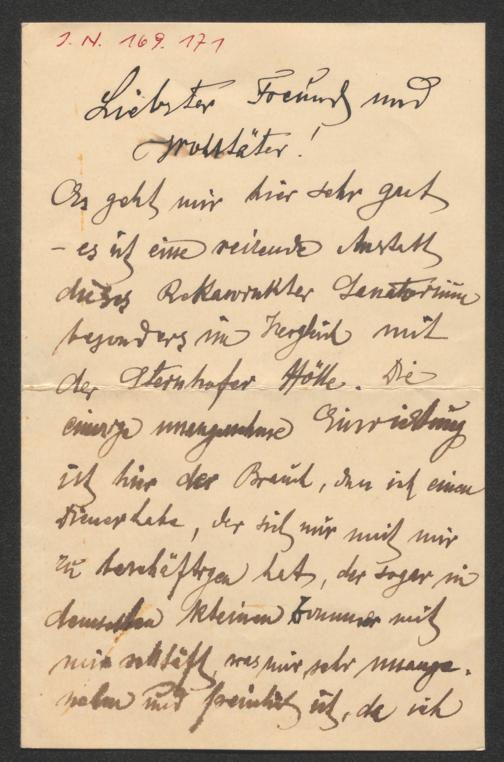 J. N. 169.171
Liebster Freund und
Wohltäter!
Es geht mir hier sehr gut
– es ist eine reizende Anstalt
dieses Rekawinkler Sanatorium
besonders im Vergleich mit
der Sternhofer Hölle. Die
einzige unangenehme Einrichtung
ist hier der Brauch, dass ich einen
Diener habe, der sich nur mit mir
zu beschäftigen hat, der sogar in
demselben kleinen Zimmer mit
mir schläft, was mir sehr unange-
nehm und peinlich ist, da ich